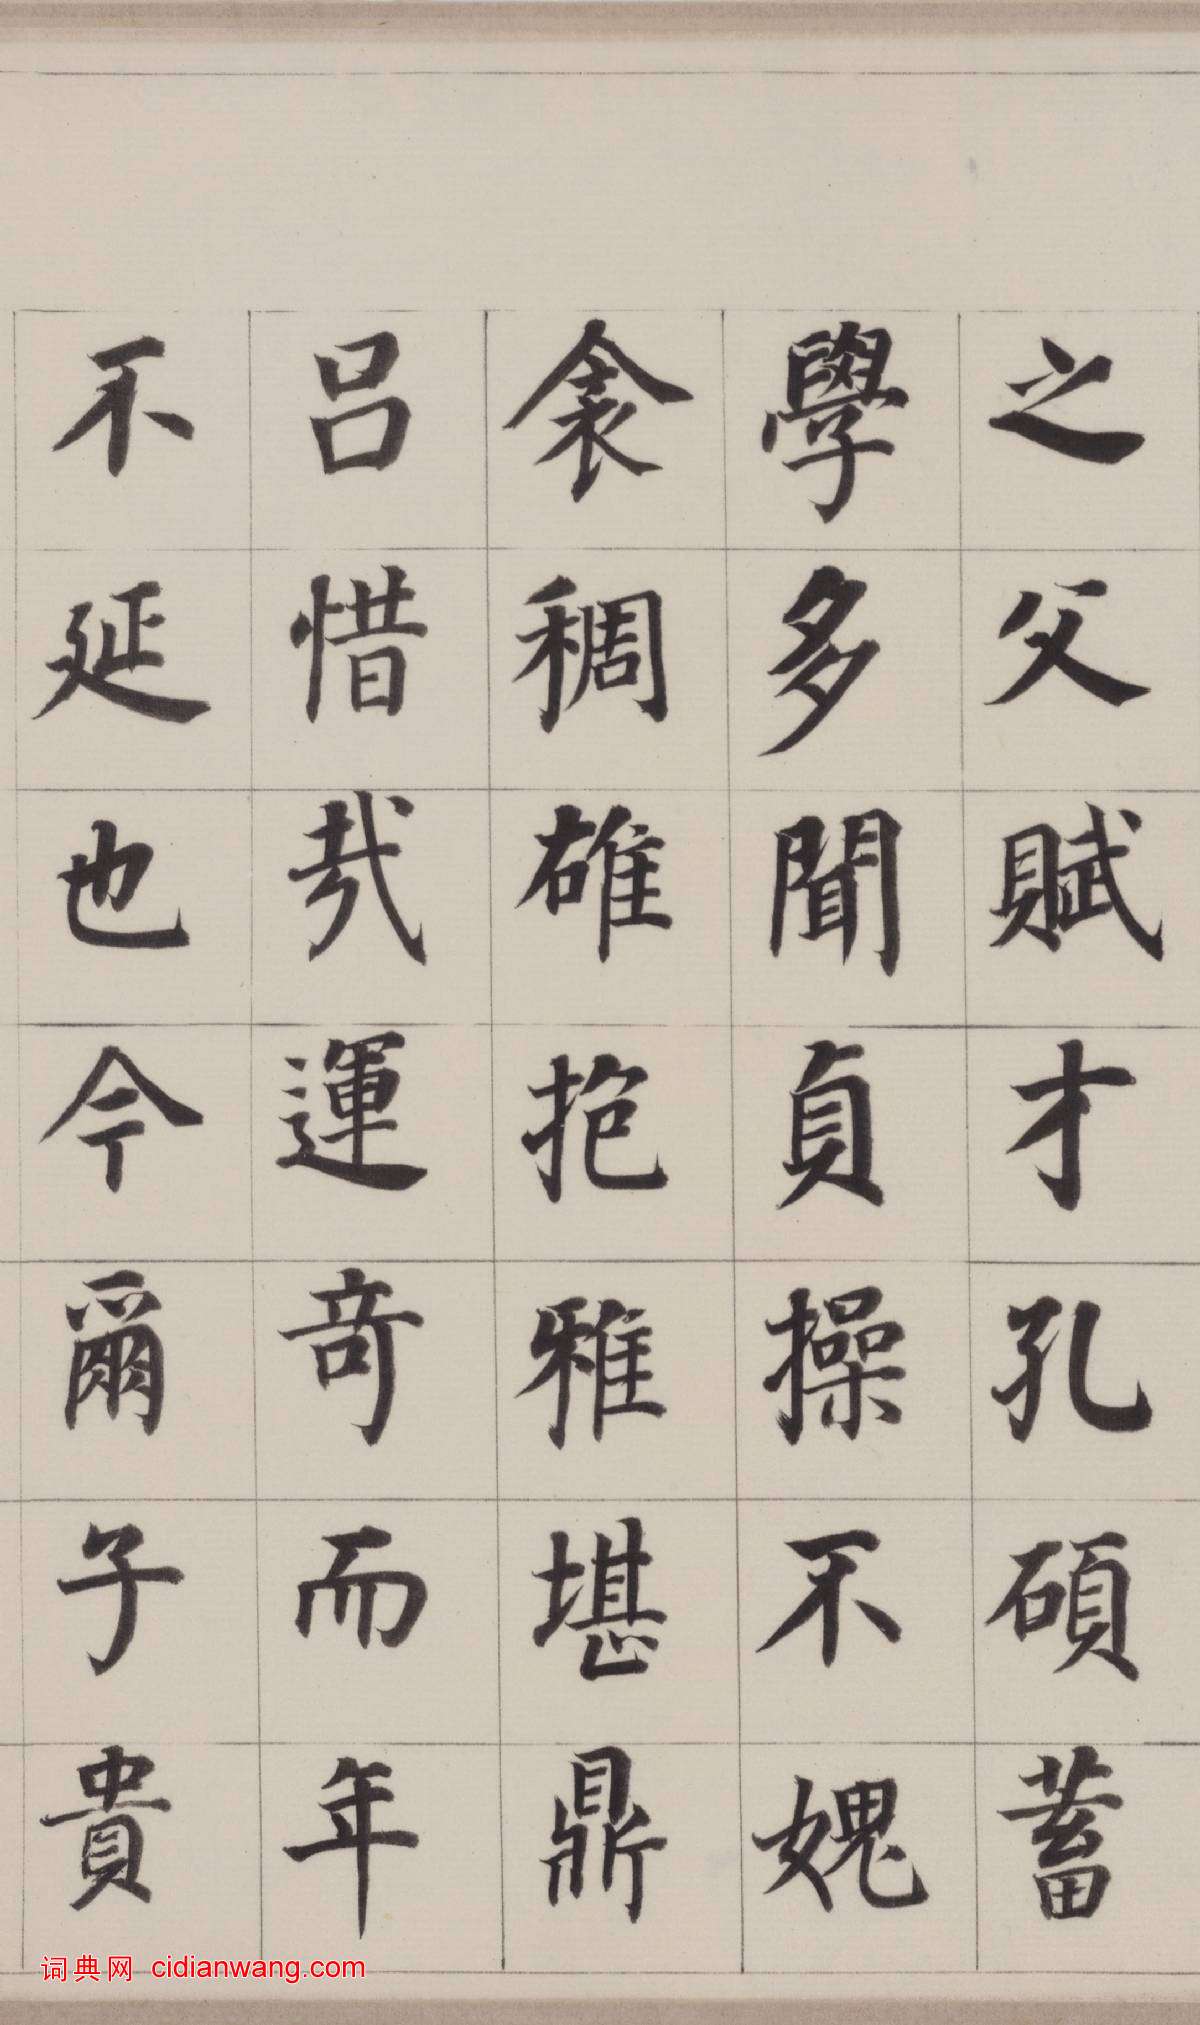 之父賦才孔碩蓄
學多聞貞操不媿
衾稠雄抱雅堪鼎
吕惜哉運奇而年
不延也今爾子貴
词典网 cidianwang.com